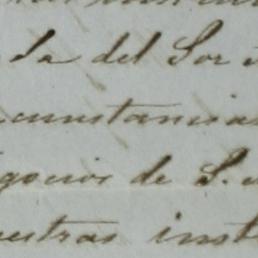 da del Sor
cunstancias
gocios de S.
uestras inst